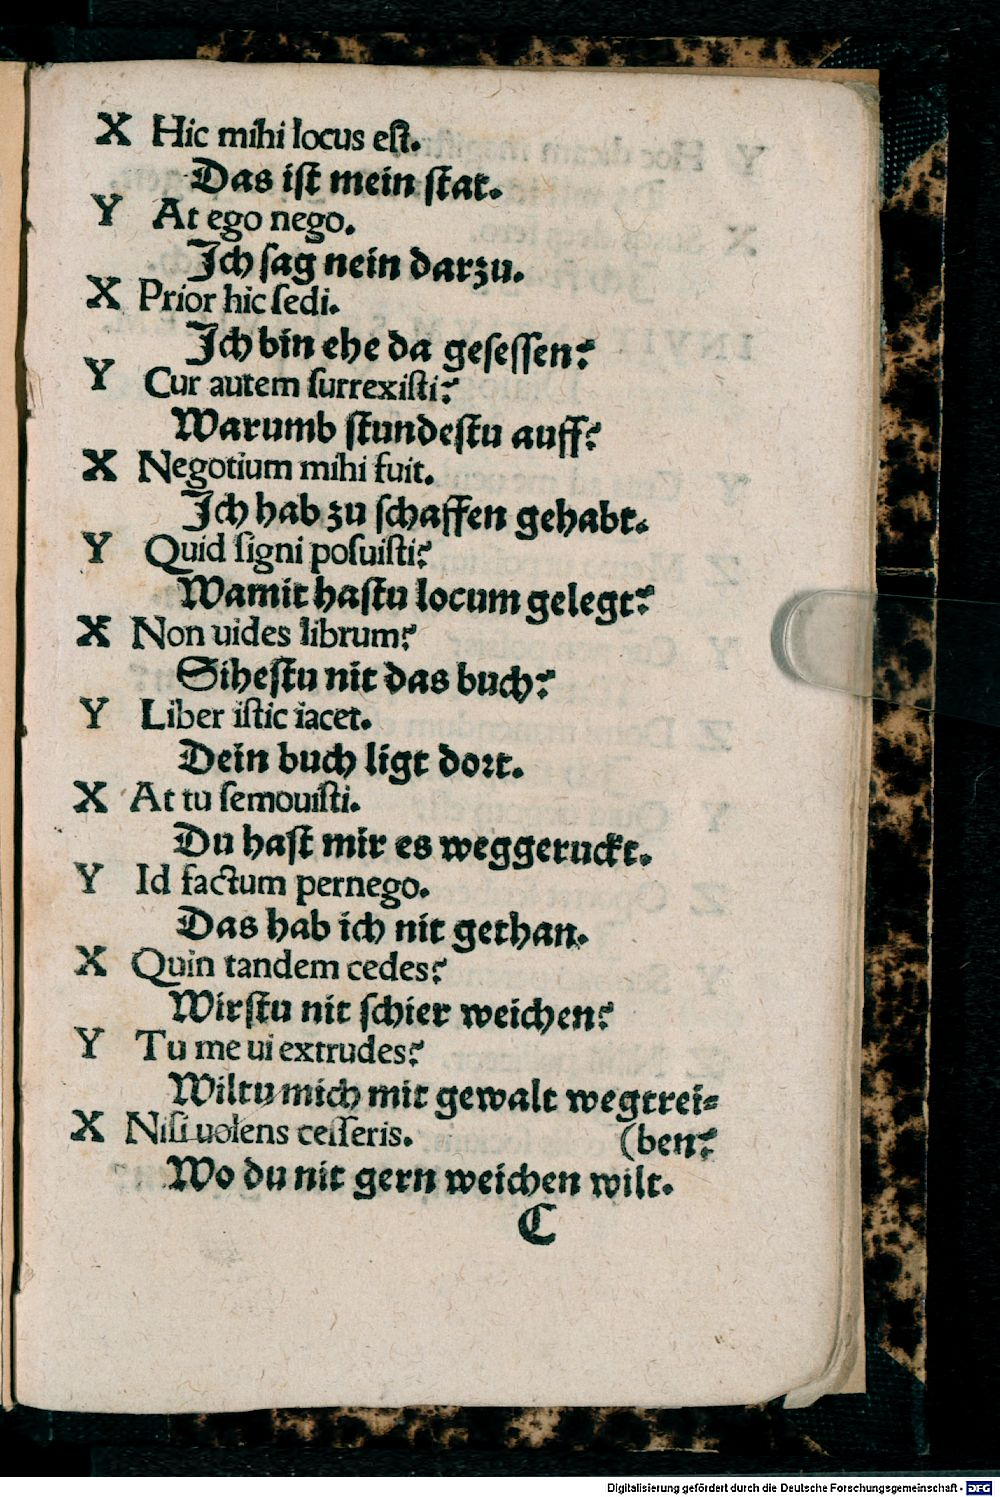 X Hic mihi locus eſt.
Das iſt mein ſtat.
Y At ego nego.
Ich ſag nein darzu.
X Prior hic ſedi.
Ich bin ehe da geſeſſen?
Y Cur autem ſurrexiſti?
Warumb ſtundeſtu auff?
X Negotium mihi fuit.
Ich hab zu ſchaffen gehabt.
Y Quid ſigni poſuiſti?
Wamit haſtu locum gelegt?
X Non uides librum?
Siheſtu nit das buch?
Y Liber iſtic iacet.
Dein buch ligt dort.
X At tu ſemouiſti.
Du haſt mir es weggeruckt.
Y Id factum pernego.
Das hab ich nit gethan.
X Quin tandem cedes?
Wirſtu nit ſchier weichen?
Y Tu me ui extrudes?
Wiltu mich mit gewalt wegtrei⸗
X Niſi uolens ceſſeris. (ben?
Wo du nit gern weichen wilt.
C
Digitalisierung gefördert durch die Deutsche Forschungsgemeinschaft - DFG